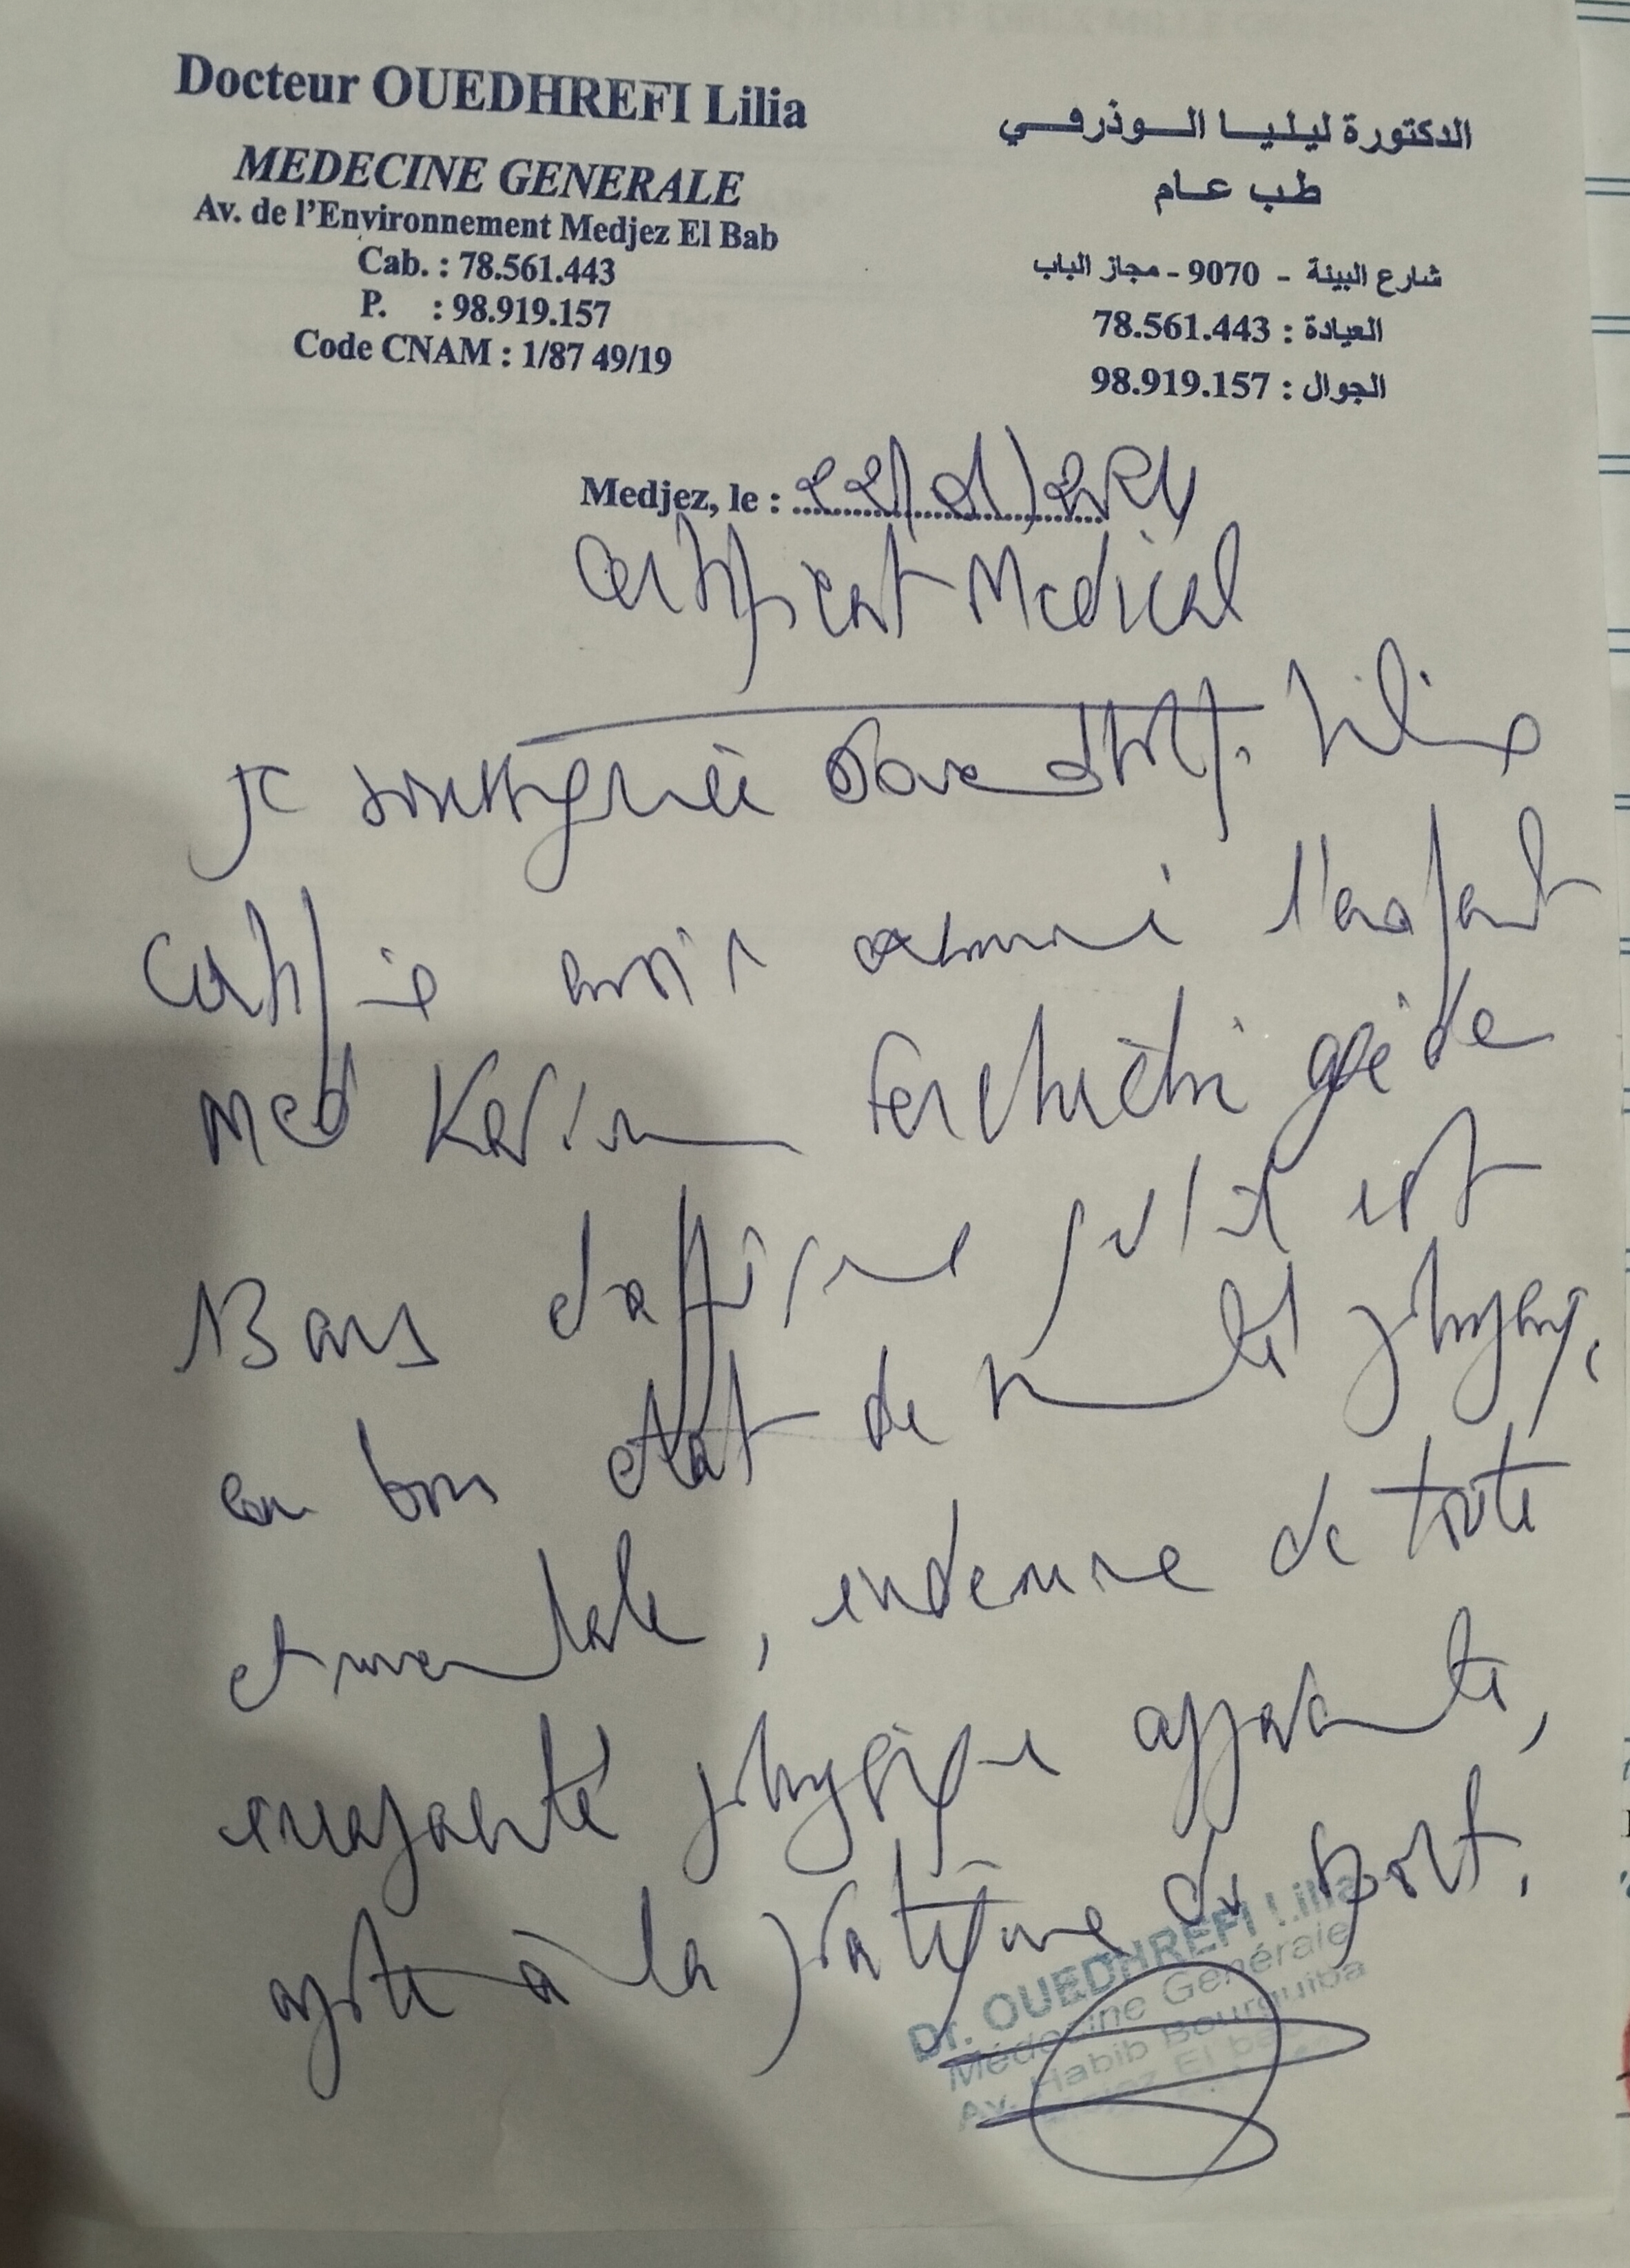 Docteur OUEDHREFI Lilia
MEDECINE GENERALE
Av. de l'Environnement Medjez El Bab
Cab. : 78.561.443
P. : 98.919.157
Code CNAM : 1/87 49/19
الدكتورة ليليا الوذرفي
طب عام
شارع البيئة - 9070 - مجاز الباب
العيادة : 78.561.443
الجوال : 98.919.157
Medjez, le :
Certificat Medical
Je soussignée Ouedhrefi Lilia
Certifie avoir examiné l'enfant
Med Karim Ferchichi agé de
13 ans d'affirme qu'il est
en bon etat de santé physique
et mentale, indemne de toute
physique apparente,
apte à la pratique du sport.
Dr. OUEDHREFI Lilia
Médecine Générale
Av. Habib Bourguiba
Medjez El bab